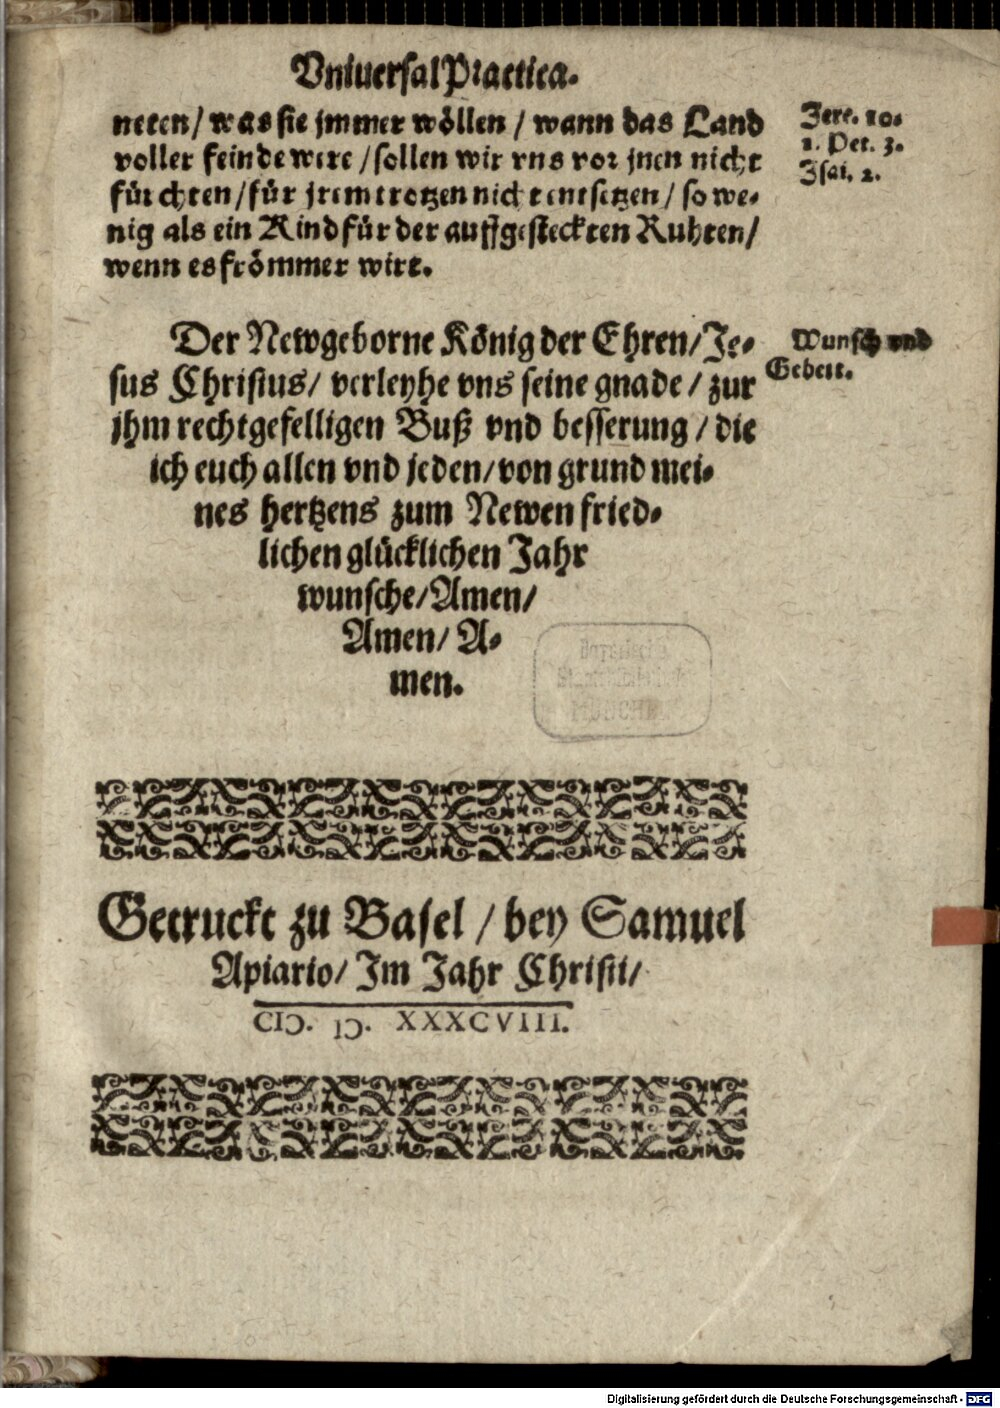 Vniuersal Practica.
neten/ was sie jmmer wöllen / wann das Land
voller feinde were / sollen wir vns vor jnen nicht
fürchten / für jrem trotzen nicht entsetzen / so we-
nig als ein Kind für der auffgesteckten Ruhten /
wenn es frömmer wirt.
Jere. 10.
1. Pet. 3.
Isai. 2.
Der Newgeborne König der Ehren / Je-
sus Christus / verleyhe vns seine gnade / zur
jhm rechtgefelligen Buß vnd besserung / die
ich euch allen vnd jeden / von grund mei-
nes hertzens zum Newen fried-
lichen glücklichen Jahr
wunsche / Amen /
Amen / A-
men.
Wunsch vnd
Gebett.
MÜNCHEN
Getruckt zu Basel / bey Samuel
Apiario / Im Jahr Christi /
CIↃ. IↃ. XXXCVIII.
Digitalisierung gefördert durch die Deutsche Forschungsgemeinschaft - DFG